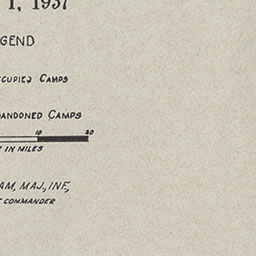 1, 1937
GEND
CUPIED CAMPS
ANDONED CAMPS
10 20
E IN MILES
AM, MAJ., INF.,
T COMMANDER